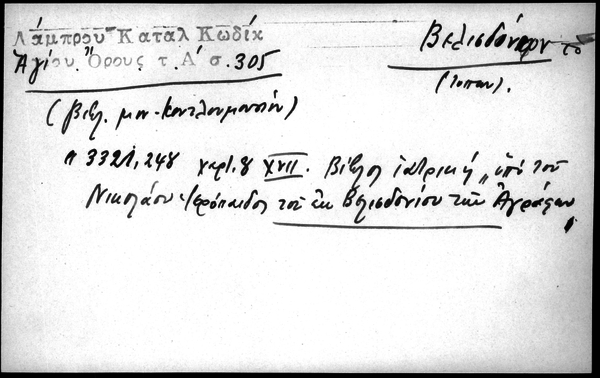 Λάμπρου Καταλ Κωδίκ
Ἁγίου Ὄρους τ. Α′ σ. 305
Βελισδόνιον το
(τοπων).
(βιβλ. μον. Κουτλουμουσίου)
3321, 248 χαρτ. 8 XVII. Βίβλος ἰατρική „ὑπό του
Νικολάου Ἱερόπαιδος τοῦ ἐκ Βελισδονίου τῶν Ἀγράφων